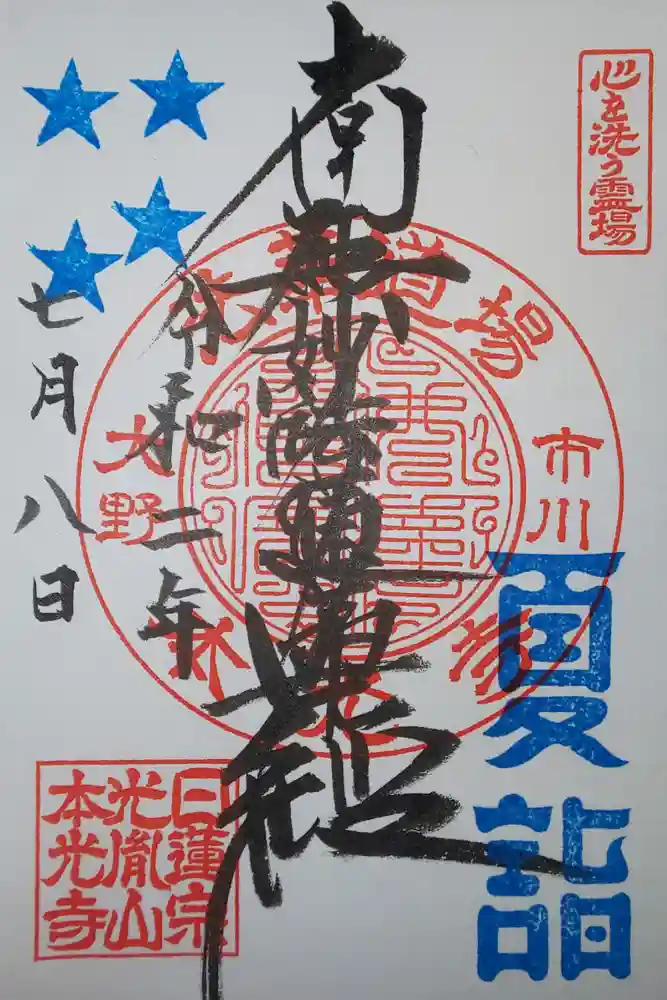 心を洗う霊場
南無妙法蓮華経
令和二年
七月八日
夏詣
市川
大野
日蓮宗
光胤山
本光寺